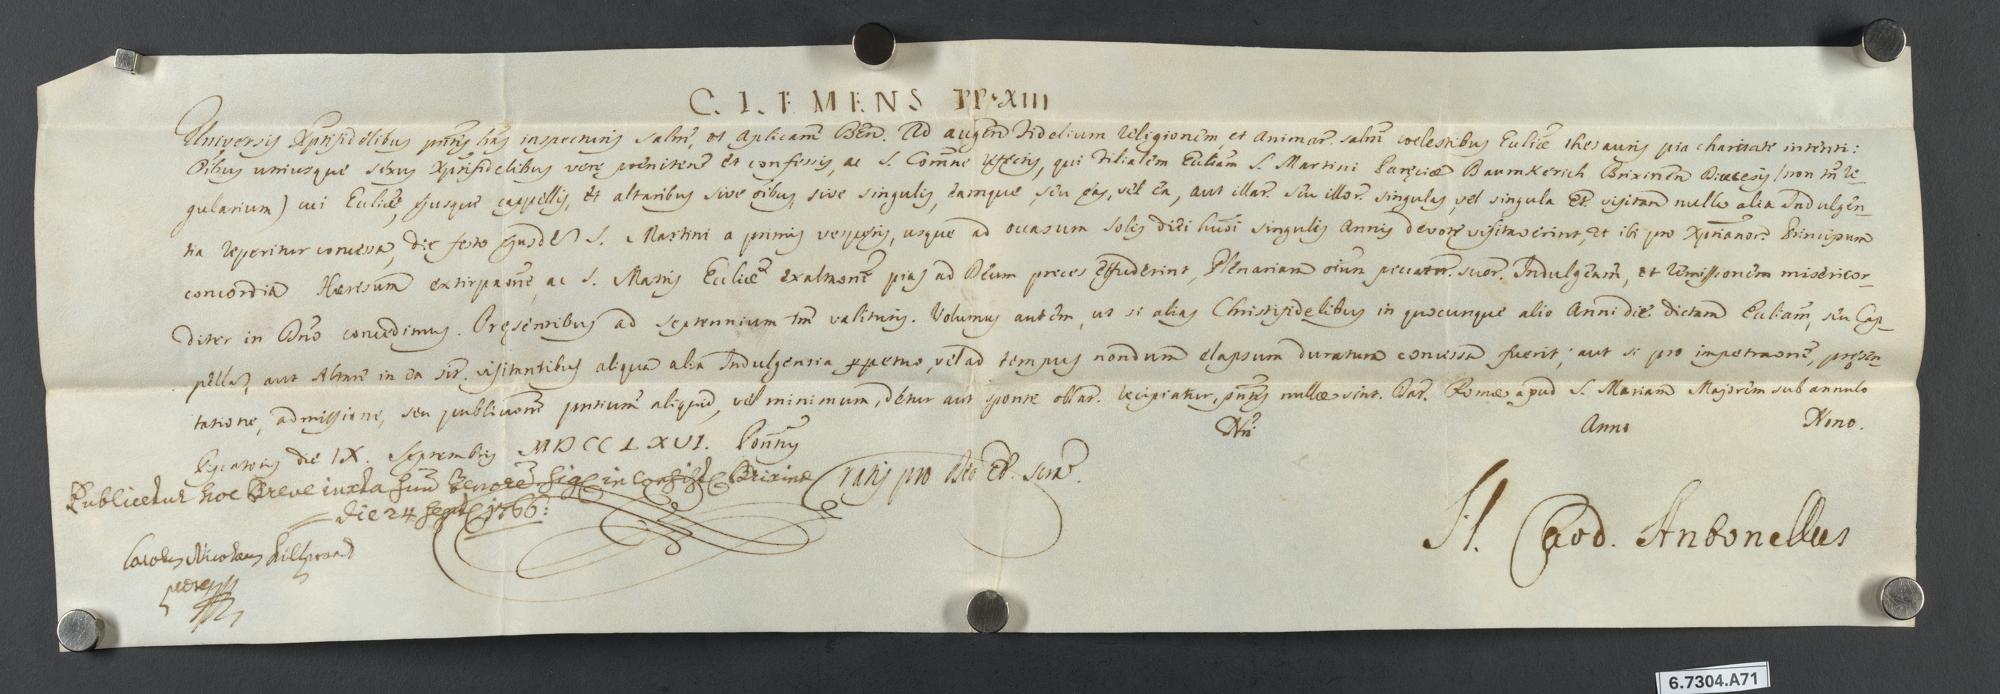 CLEMENS PP. XIII
Universis Xptifidelibus pntes lras inspecturis salm, et Aplicam Ben. Ad augen Fidelium religionem, et Animar. salm coelestibus Ecclie thesauris pia charitate intenti:
Oibus utriusque sexus Xptifidelibus vere poenitent et confessis, ac S. Comne refectis, qui Filialem Eccliam S. Martini Parociae Baumkerich Brixinen Diecesis (non tm Re-
gularium) cui Ecclie, ejusque cappellis, et altaribus sive oibus, sive singulis, eamque, seu eas, vel ea, aut illar. seu illor. singulas, vel singula Et visitan nulla alia Indulgen-
tia reperitur concessa, die festo ejusdem S. Martini a primis vesperis, usque ad occasum solis diei hujusmodi singulis Annis devote visitaverint, et ibi pro Xptianor. Principum
concordia Haeresum extirpaone, ac S. Matris Ecclie exaltaone pias ad Deum preces effuderint, Plenariam oium peccator. suor. Indulgentiam, et remissionem misericor-
diter in Dno concedimus. Presentibus ad septennium tm valituris. Volumus autem, ut si alias Christifidelibus in quocunque alio Anni die dictam Eccliam, seu Cap-
pellas, aut Altare in ea sit. visitantibus aliqua alia Indulgentia perpetuo, vel ad tempus nondum elapsum duratura concessa fuerit; aut si pro impetraone, presen-
tatione, admissione, seu publicaone pntium aliquid, vel minimum, detur aut sponte oblat. recipiatur, pntes nullae sint. Dat. Romae apud S. Mariam Majorem sub annulo
Piscatoris die IX. Septembris MDCCLXVI. Pontus Nri Anno Nono.
Publicetur hoc Breve iuxta suum tenorem Sig. in Consist. Brixinae
die 24 Sept. 1766:
Carolus Nicolaus
Gratis pro Deo Et. Scra.
N. Card. Antonellus
6.7304.A71